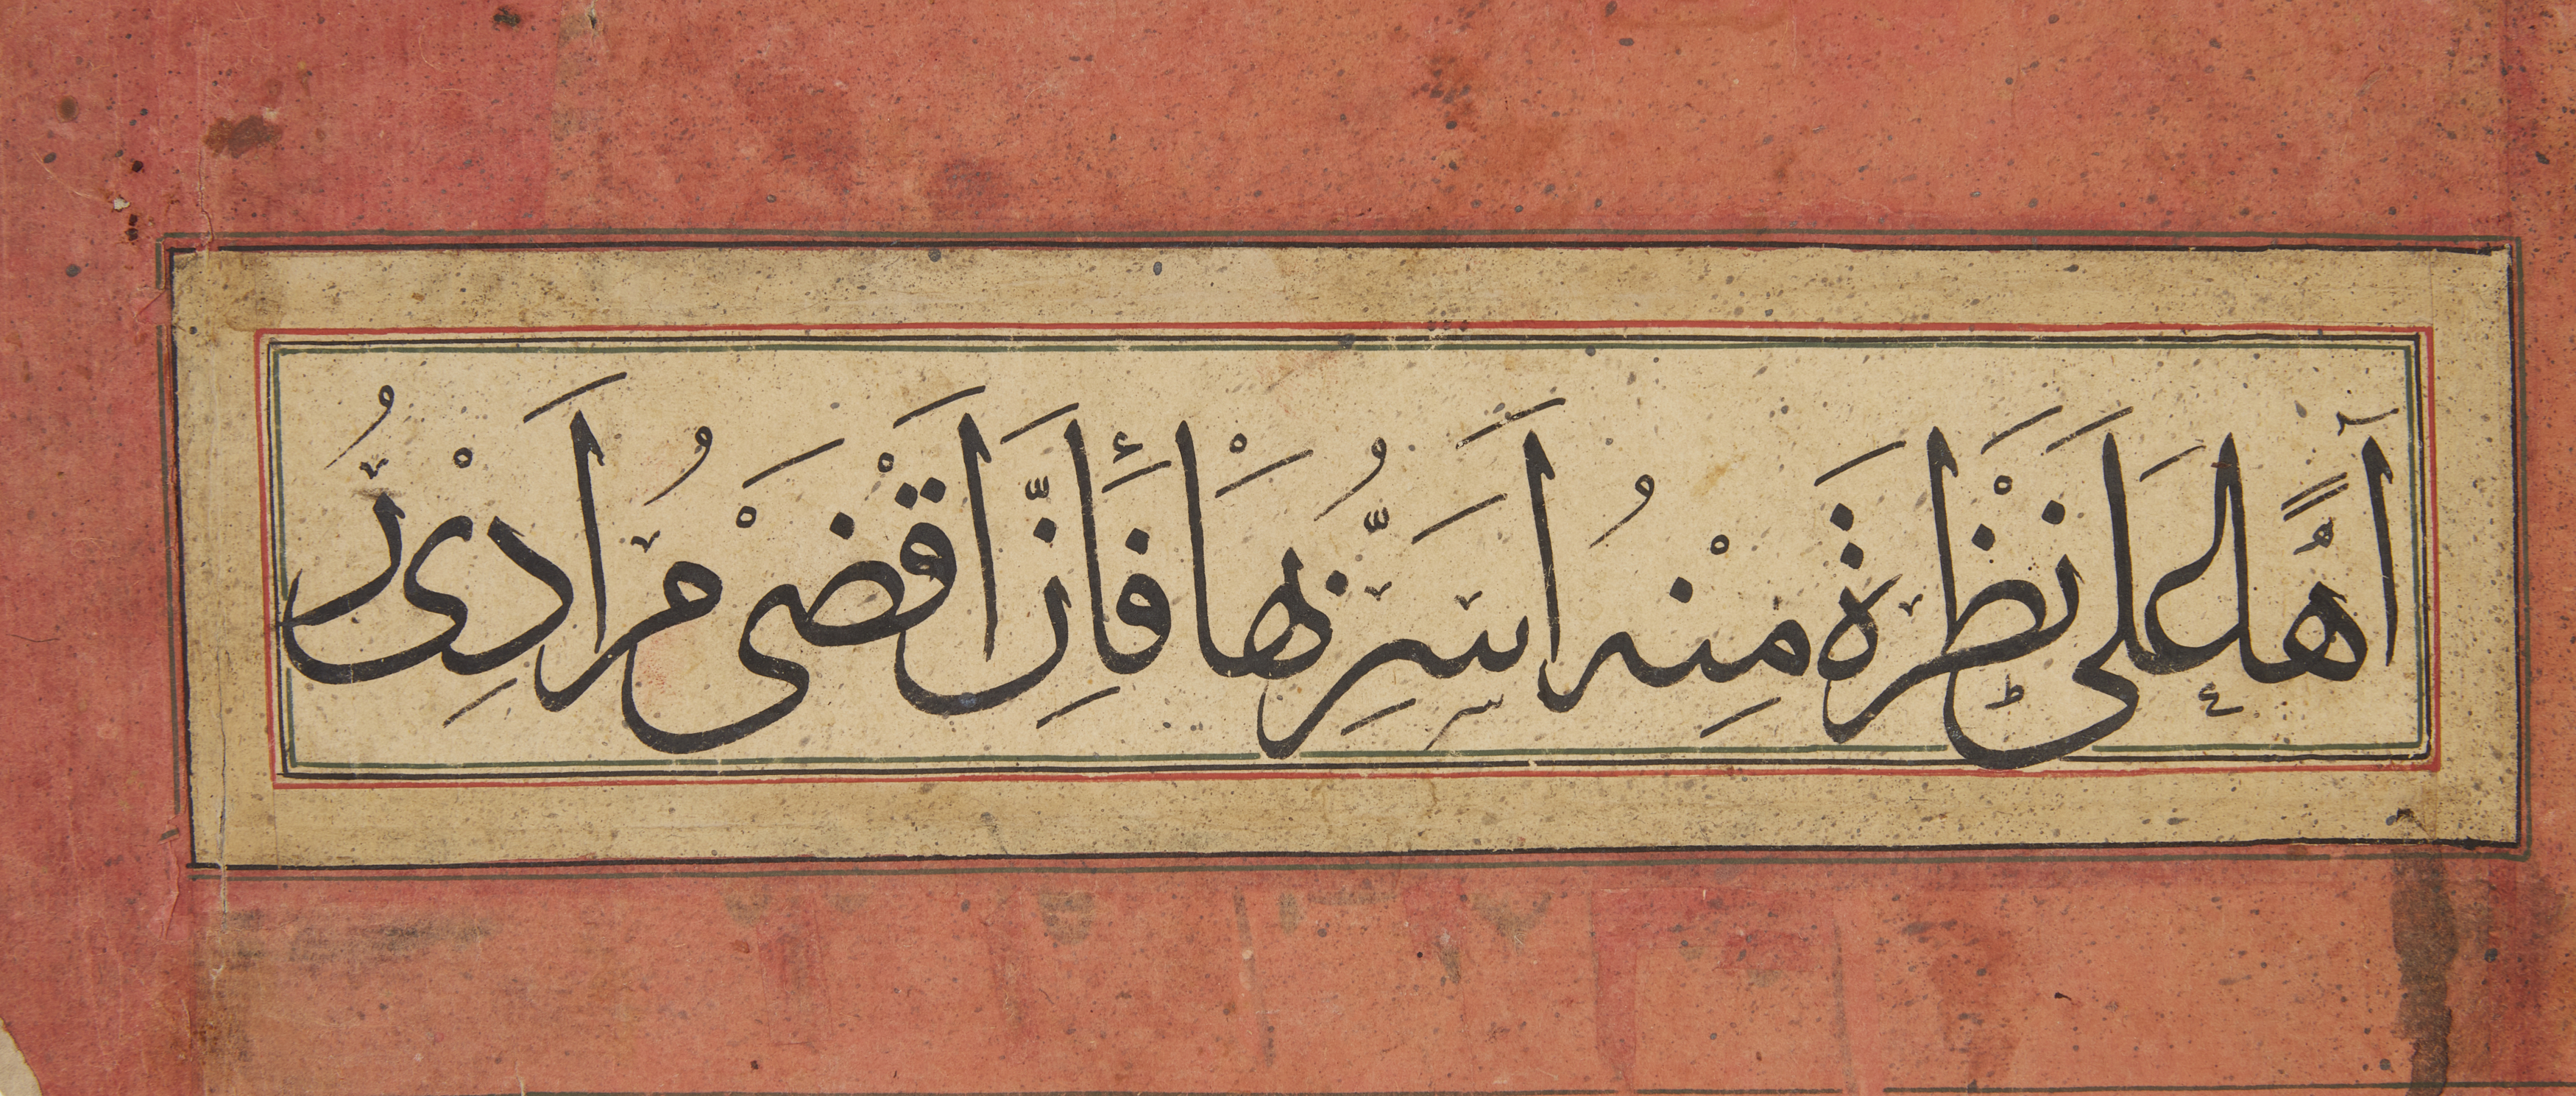 آهًا عَلَى نَظْرَةَ مِنْهُ اَسَرُّ بِهَا فَأِنَّ اَقْضَىْ مُرَادِىْ رُ